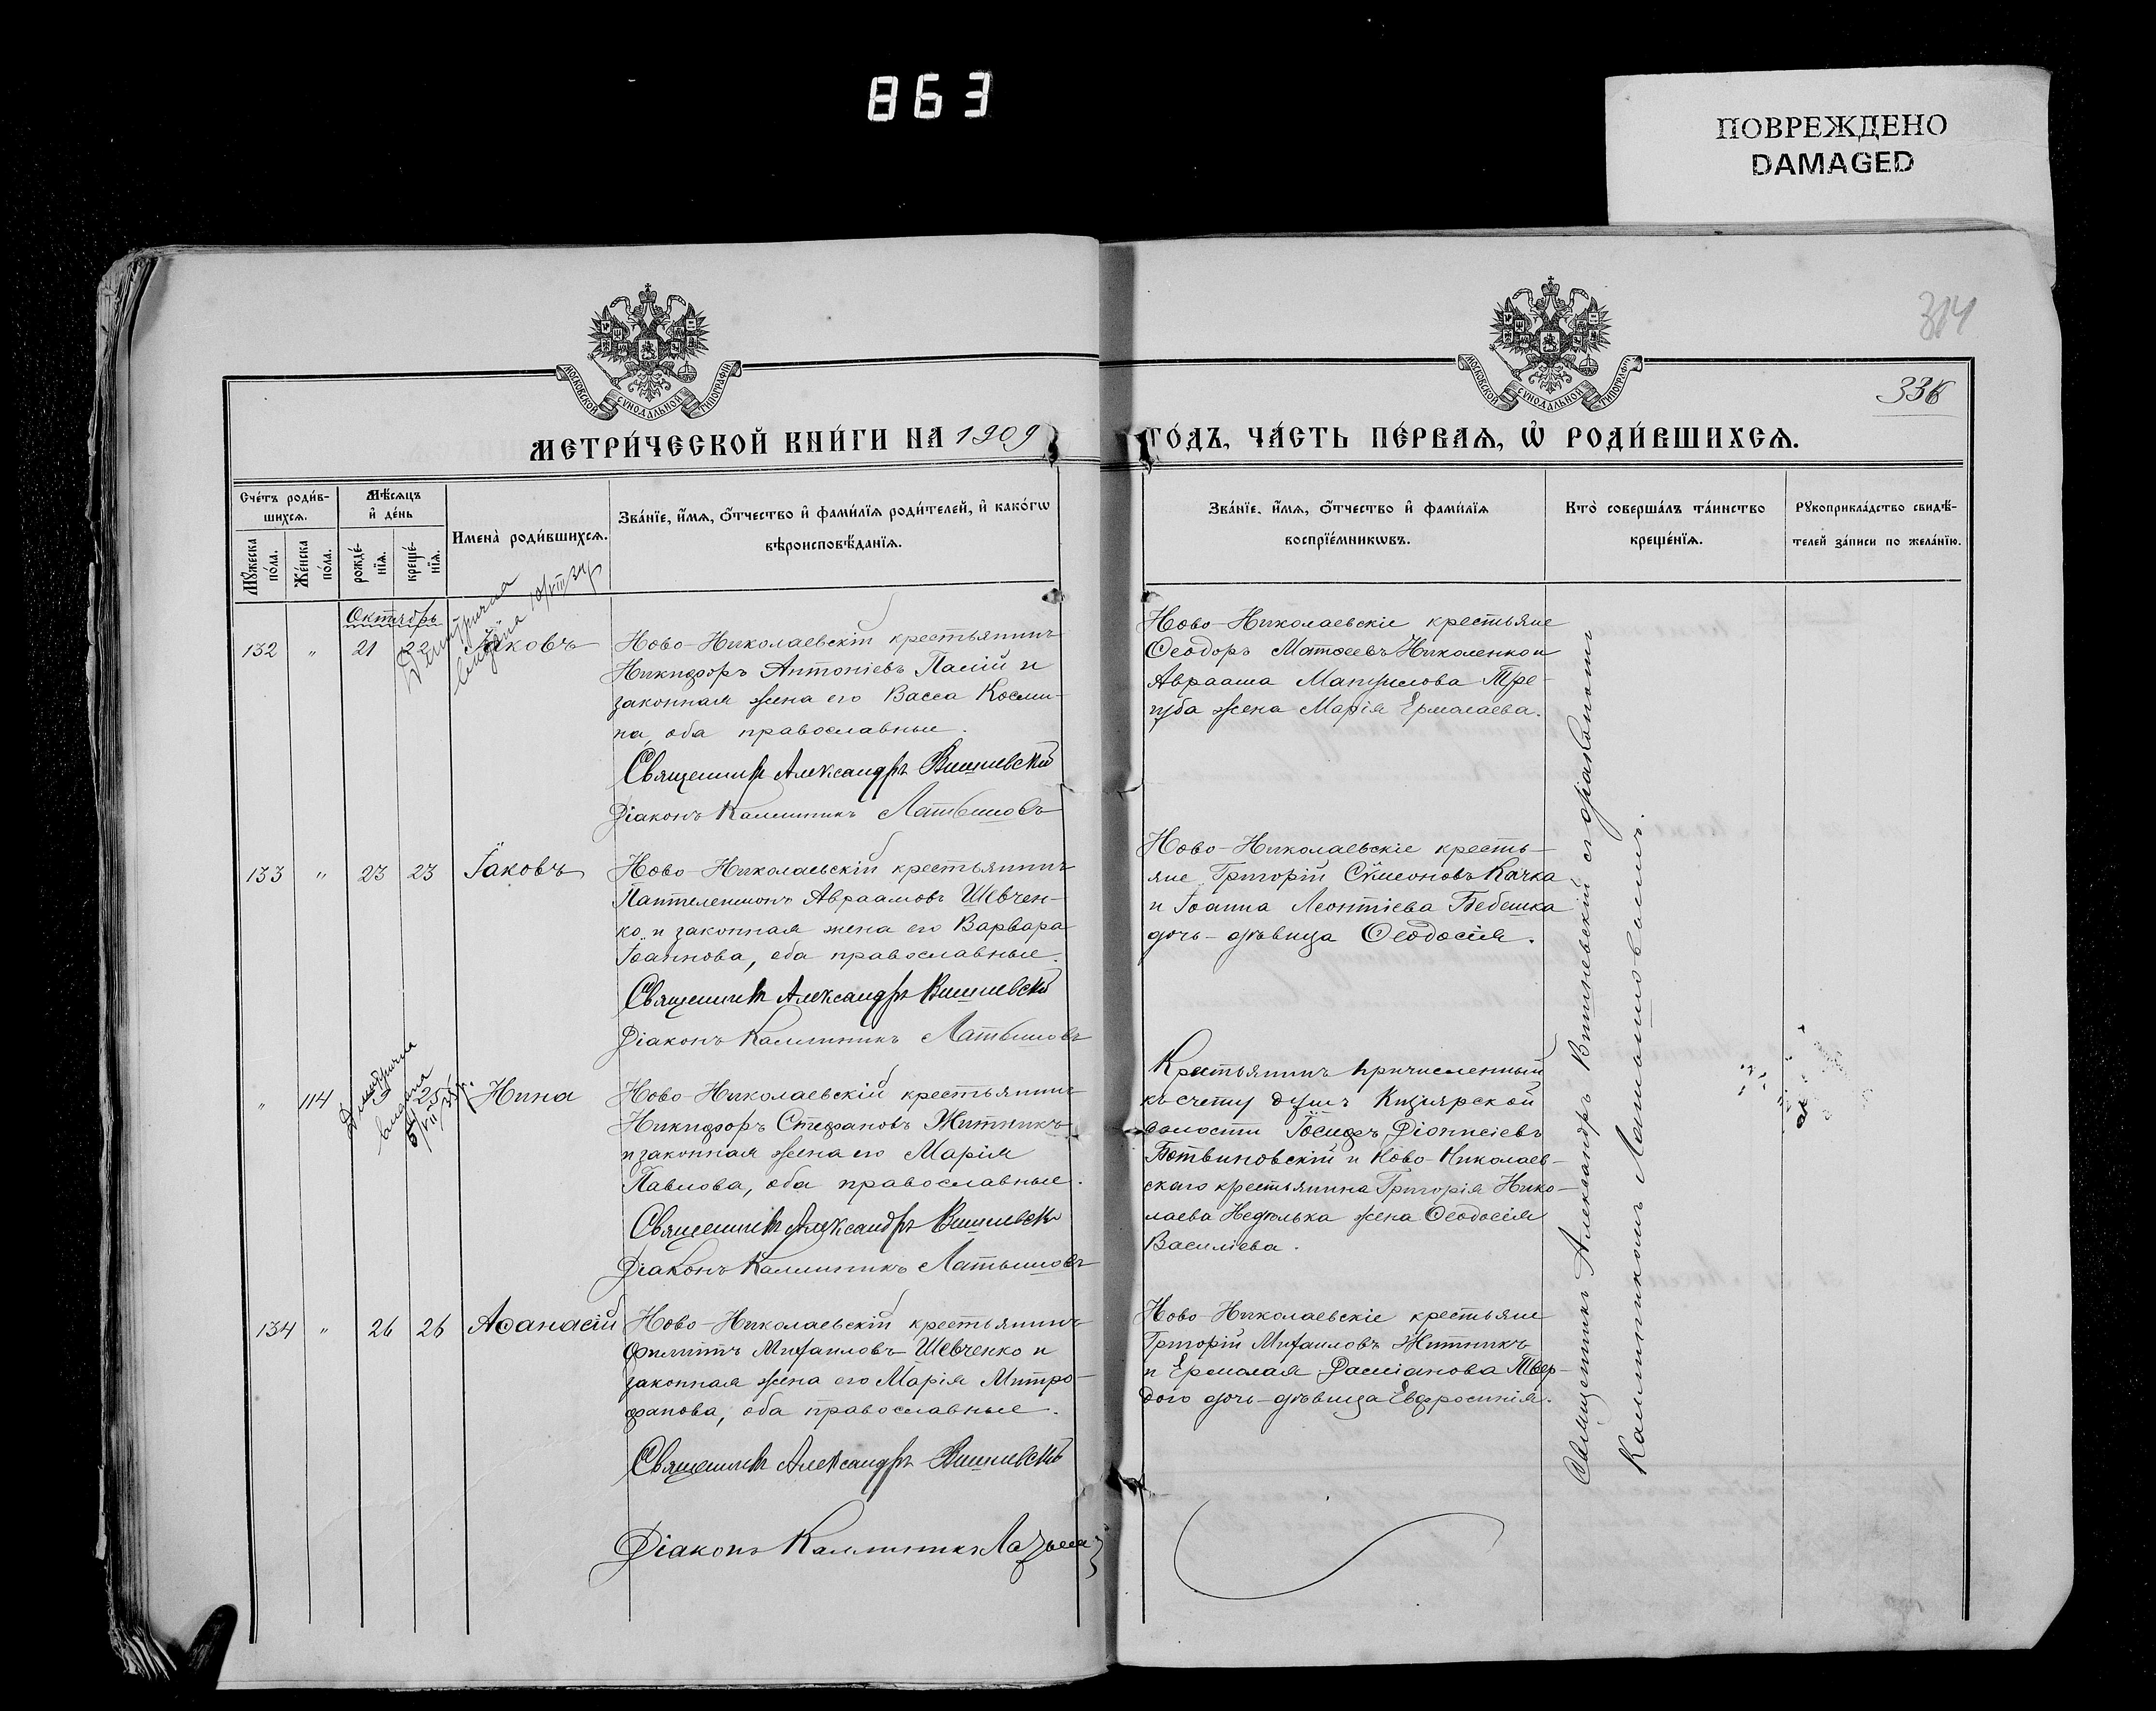 863
ПОВРЕЖДЕНО
DAMAGED
314
336
МОСКОВСКОЙ СѴНОДАЛЬНОЙ ТИПОГРАФІИ
МОСКОВСКОЙ СѴНОДАЛЬНОЙ ТИПОГРАФІИ
МЕТРИ́ЧЕСКОЙ КНИ́ГИ НА 1909
ГО́ДЪ, ЧА́СТЬ ПЕ́РВАЯ, Ѡ РОДИ́ВШИХСЯ.
Сче́тъ роди́в-
шихся.
Му́жеска по́ла.
Же́нска по́ла.
Мѣ́сяцъ
и де́нь
рожде́-
нія.
креще́-
нія.
Имена̀ роди́вшихся.
Зва́ніе, и́мя, о́тчество и фами́лія роди́телей, и како́гѡ
вѣроисповѣ́данія.
Зва́ніе, и́мя, о́тчество и фами́лія
воспріе́мникѡвъ.
Кто̀ соверша́лъ та́инство
креще́нія.
Рꙋкоприкла́дство свидѣ́-
телей за́писи по жела́нію.
Октябрь
132 " 21 22 Іаковъ
Ново-Николаевскій крестьянинъ
Никифоръ Антоніевъ Палій и
законная жена его Васса Косми-
на, оба православные.
Священникъ Александръ Вишневскій
Діаконъ Каллиникъ Латышовъ
Ново-Николаевскіе крестьяне
Ѳеодоръ Матѳеевъ Николенко и
Авраама Мануилова Тре-
губа жена Марія Ермолаева.
133 " 23 23 Іаковъ
Ново-Николаевскій крестьянинъ
Пантелеимонъ Авраамовъ Шевчен-
ко и законная жена его Варвара
Іоаннова, оба православные.
Священникъ Александръ Вишневскій
Діаконъ Каллиникъ Латышовъ
Ново-Николаевскіе кресть-
яне Григорій Сѵмеоновъ Качка
и Іоанна Леонтіева Бебешка
дочь-дѣвица Ѳеодосія.
" 114 25 Нина
Ново-Николаевскій крестьянинъ
Никифоръ Стефановъ Житникъ
и законная жена его Марія
Павлова, оба православные.
Священникъ Александръ Вишневскій
Діаконъ Каллиникъ Латышовъ
Крестьянинъ причисленный
къ счету душъ Кизіярской
волости Іосифъ Діонисіевъ
Ботвиновскій и Ново-Николаев-
скаго крестьянина Григорія Нико-
лаева Недѣлька жена Ѳеодосія
Василіева.
134 " 26 26 Аѳанасій
Ново-Николаевскій крестьянинъ
Филиппъ Михаиловъ Шевченко и
законная жена его Марія Митро-
фанова, оба православные.
Священникъ Александръ Вишневскій
Діаконъ Каллиникъ
Ново-Николаевскіе крестьяне
Григорій Михаиловъ Житникъ
и Ермолая Даміанова Твер-
дого дочь-дѣвица Евфросинія.
Священникъ Александръ Вишневскій съ діакономъ
Каллиникомъ Латышовымъ.